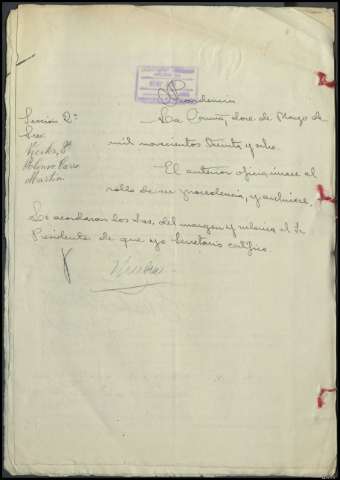 Providencia
Sección 2ª
La Coruña, doce de Mayo de
mil novecientos treinta y ocho.
Alonso Carro
Martín
El anterior oficio únase al
rollo de su procedencia, y archívese.
Lo acordaron los Sres. del margen y rubrica el Sr
Presidente de que yo Secretario certifico